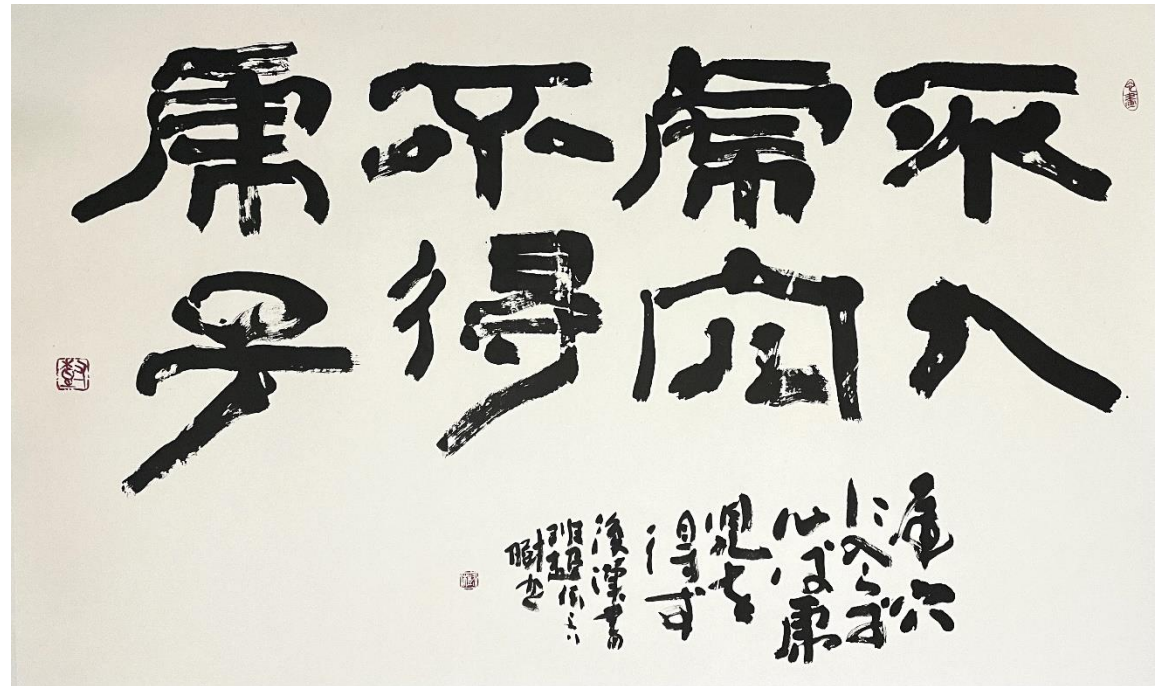 不入
虎穴
不得
虎子
虎穴
に入らず
んば虎
児を
得ず
後漢書
班超伝より